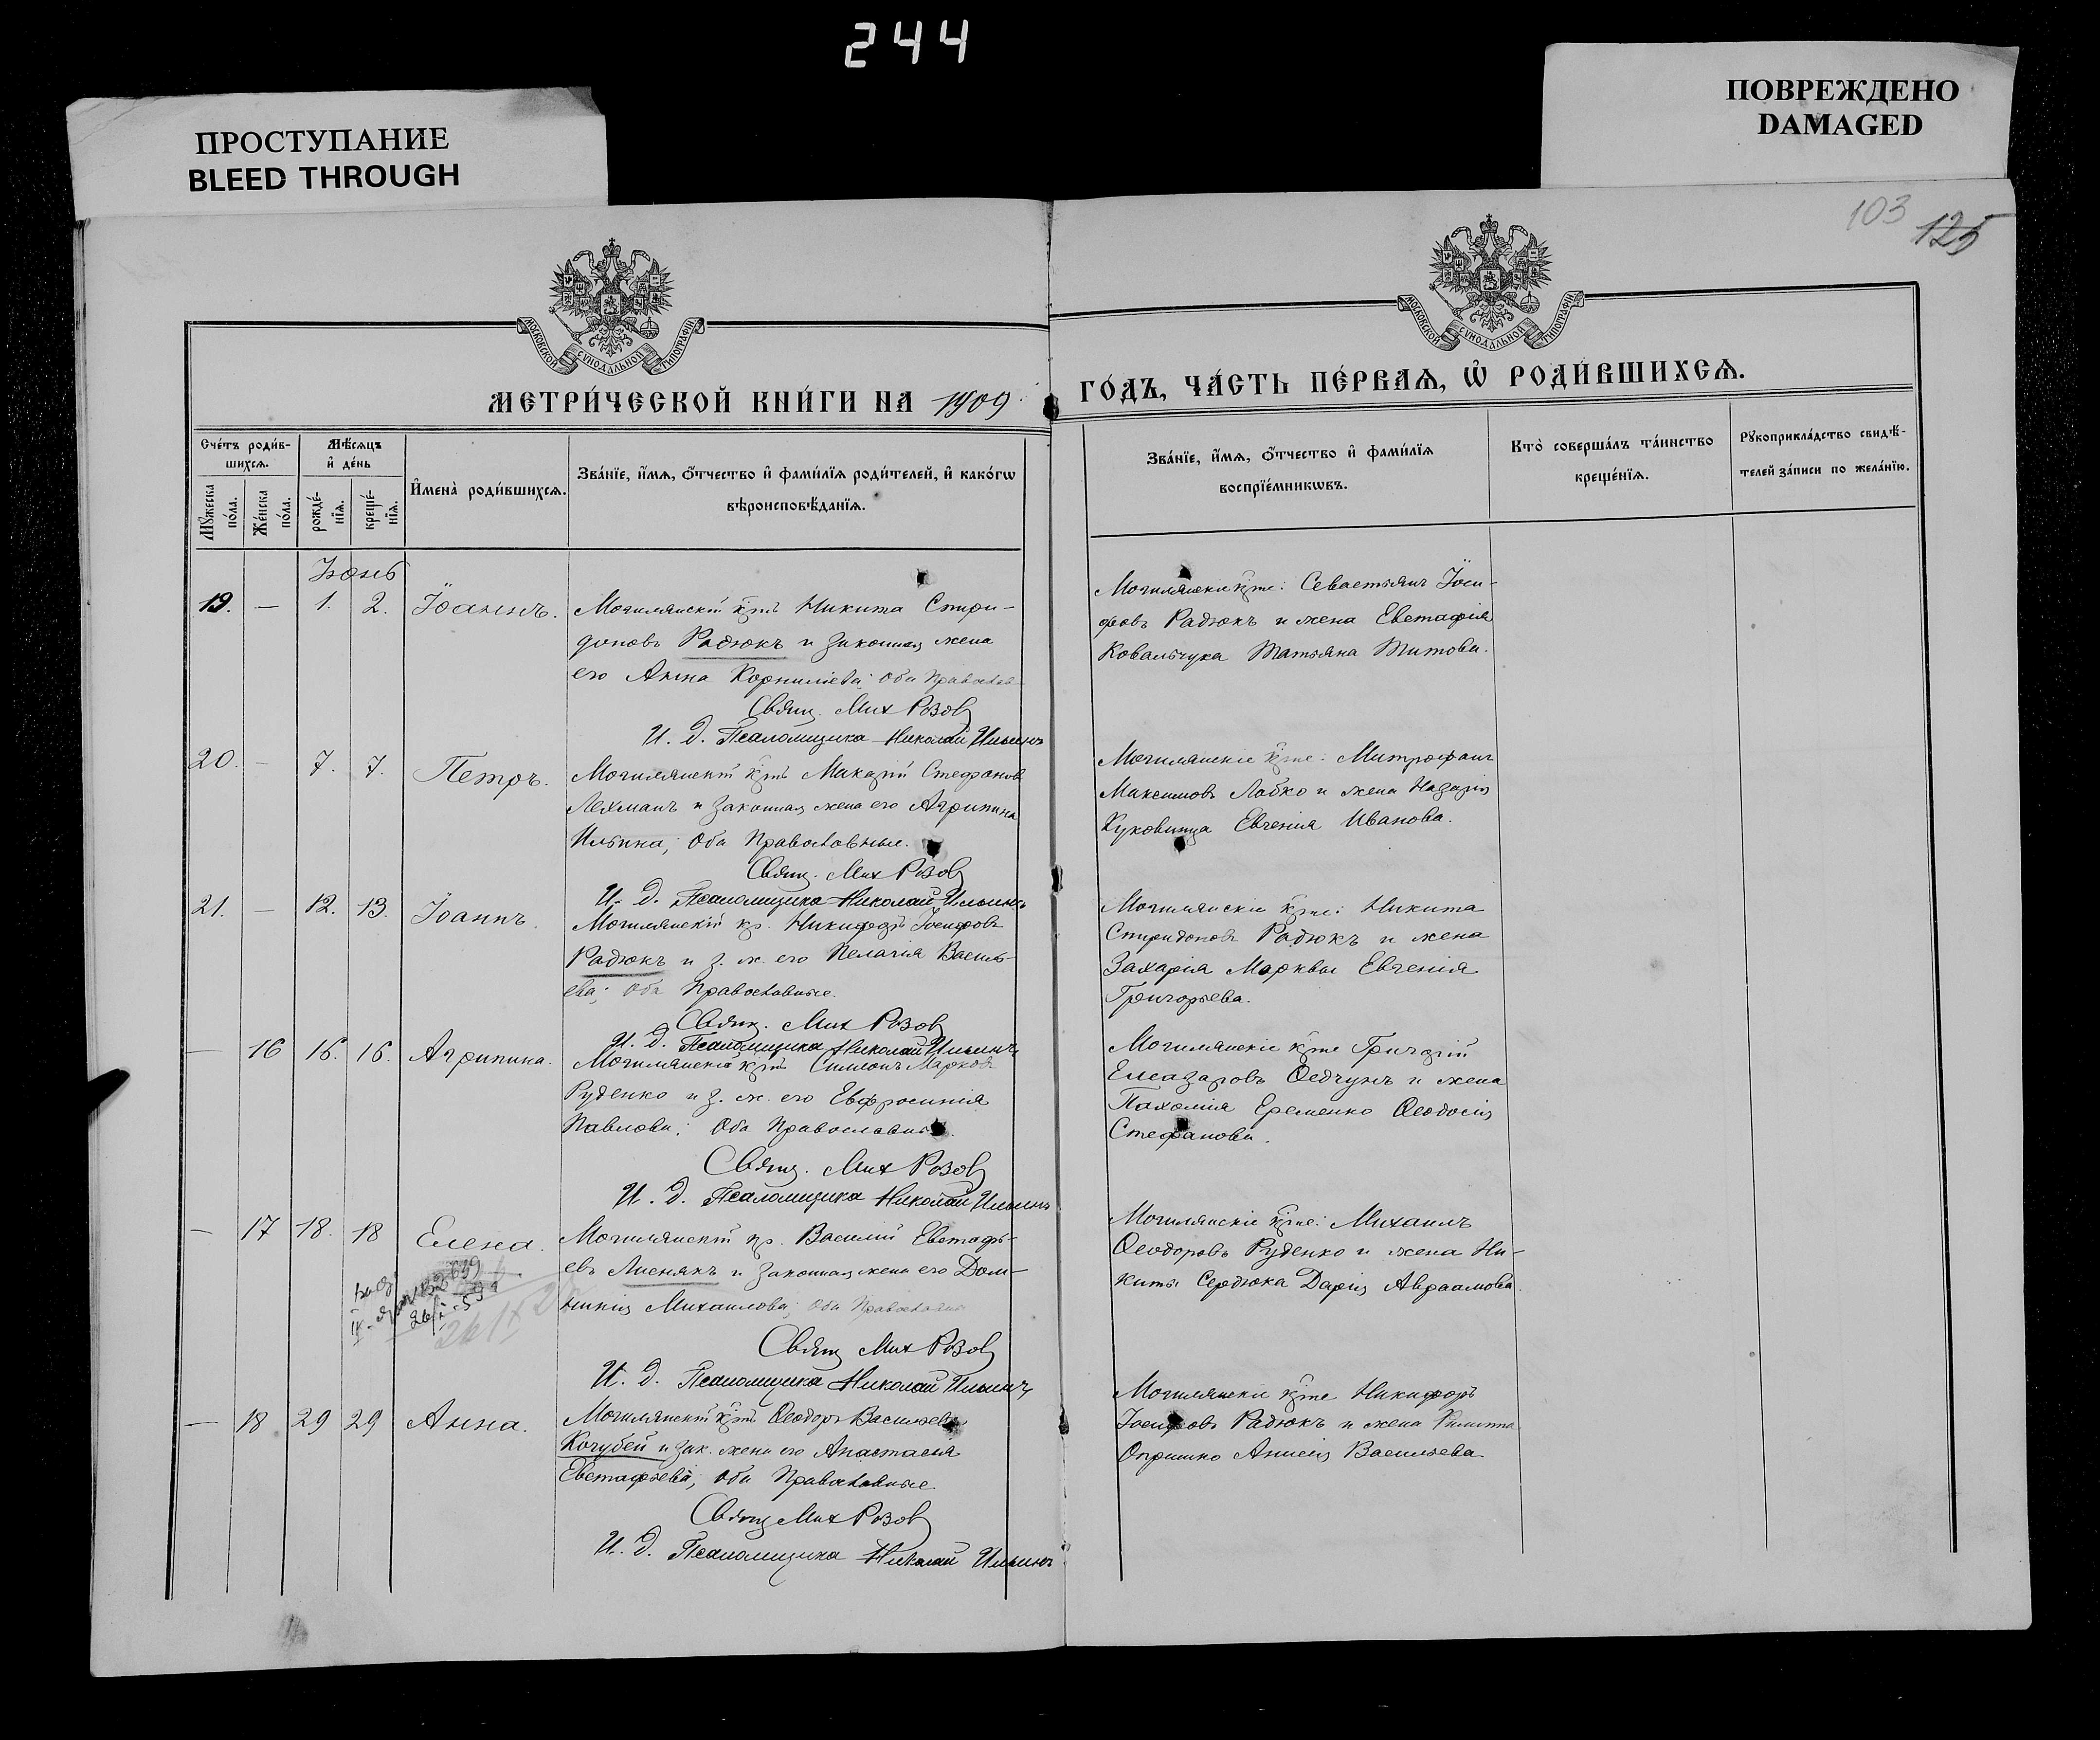 244
ПРОСТУПАНИЕ
BLEED THROUGH
ПОВРЕЖДЕНО
DAMAGED
103 125
МОСКОВСКОЙ СѴНОДАЛЬНОЙ ТИПОГРАФІИ
МОСКОВСКОЙ СѴНОДАЛЬНОЙ ТИПОГРАФІИ
МЕТРИ́ЧЕСКОЙ КНИ́ГИ НА 1909
ГО́ДЪ, ЧА́СТЬ ПЕ́РВАѦ, Ѡ҆ РОДИ́ВШИХСѦ.
Сче́тъ роди́в-
шихсѧ.
Мѣ́сѧцъ
и҆ де́нь
Мꙋ́жеска
по́ла.
Же́нска
по́ла.
рожде́-
нїѧ.
креще́-
нїѧ.
И҆мена̀ роди́вшихсѧ.
Зва́нїе, и҆́мѧ, ѻ҆́тчество и҆ фами́лїѧ роди́телей, и҆ како́гѡ
вѣроисповѣ́данїѧ.
Зва́нїе, и҆́мѧ, ѻ҆́тчество и҆ фами́лїѧ
воспрїе́мникѡвъ.
Кто̀ соверша́лъ та́инство
креще́нїѧ.
Рꙋкоприкла́дство свидѣ́-
телей за́писи по жела́нїю.
Іюнь
19. — 1. 2. Іоаннъ.
Могилянскій крт҃ъ Никита Спири-
доновъ Радюкъ и законная жена
его Анна Корнилiева; оба Православ
Свящ. Мих Розов
И. д. Псаломщика Николай Ильинъ
Могилянскіе крт҃е: Севастьянъ Іоси-
фовъ Радюкъ и жена Евстафія
Ковальчука Татьяна Титова.
20. — 7. 7. Петръ.
Могилянскій крт҃ъ Макарій Стефановъ
Лехманъ и законная жена его Агрипина
Ильина; Оба Православные.
Свящ. Мих Розов
И. д. Псаломщика Николай Ильинъ
Могилянскіе крт҃е: Митрофанъ
Максимовъ Лабко и жена Назарія
Куковица Евгенія Иванова.
21. — 12. 13. Іоаннъ.
Могилянскій кр. Никифоръ Іосифовъ
Радюкъ и з. ж. его Пелагія Василь-
ева; Оба Православные.
Свящ. Мих Розов
И. д. Псаломщика Николай Ильинъ
Могилянскіе крт҃е: Никита
Спиридоновъ Радюкъ и жена
Захарія Марквы Евгенія
Григорьева.
— 16 16. 16. Агрипина.
Могилянскій крт҃ъ Симеонъ Марковъ
Руденко и з. ж. его Евфросинія
Павлова; Оба Православные.
Свящ. Мих Розов
И. д. Псаломщика Николай Ильинъ
Могилянскіе крт҃е Григорій
Елеазаровъ Ѳедчунъ и жена
Пахомія Еременко Ѳеодосія
Стефанова.
— 17 18. 18 Елена.
Могилянскій кр. Василій Евстафь-
евъ Лиснякъ и законная жена его Дом-
никія Михаилова; Оба Православные
Свящ Мих Розов
И. д. Псаломщика Николай Ильинъ
Могилянскіе крт҃е: Михаилъ
Ѳеодоровъ Руденко и жена Ни-
киты Сердюка Дарія Авраамова.
— 18 29 29 Анна.
Могилянскій крт҃ъ Ѳеодоръ Васильевъ
Кочубей и зак. жена его Анастасія
Евстафьева; Оба Православные
Свящ Мих Розов
И. д. Псаломщика Николай Ильинъ
Могилянскіе крт҃е Никифоръ
Іосифовъ Радюкъ и жена Филиппа
Опришко Анисія Васильева